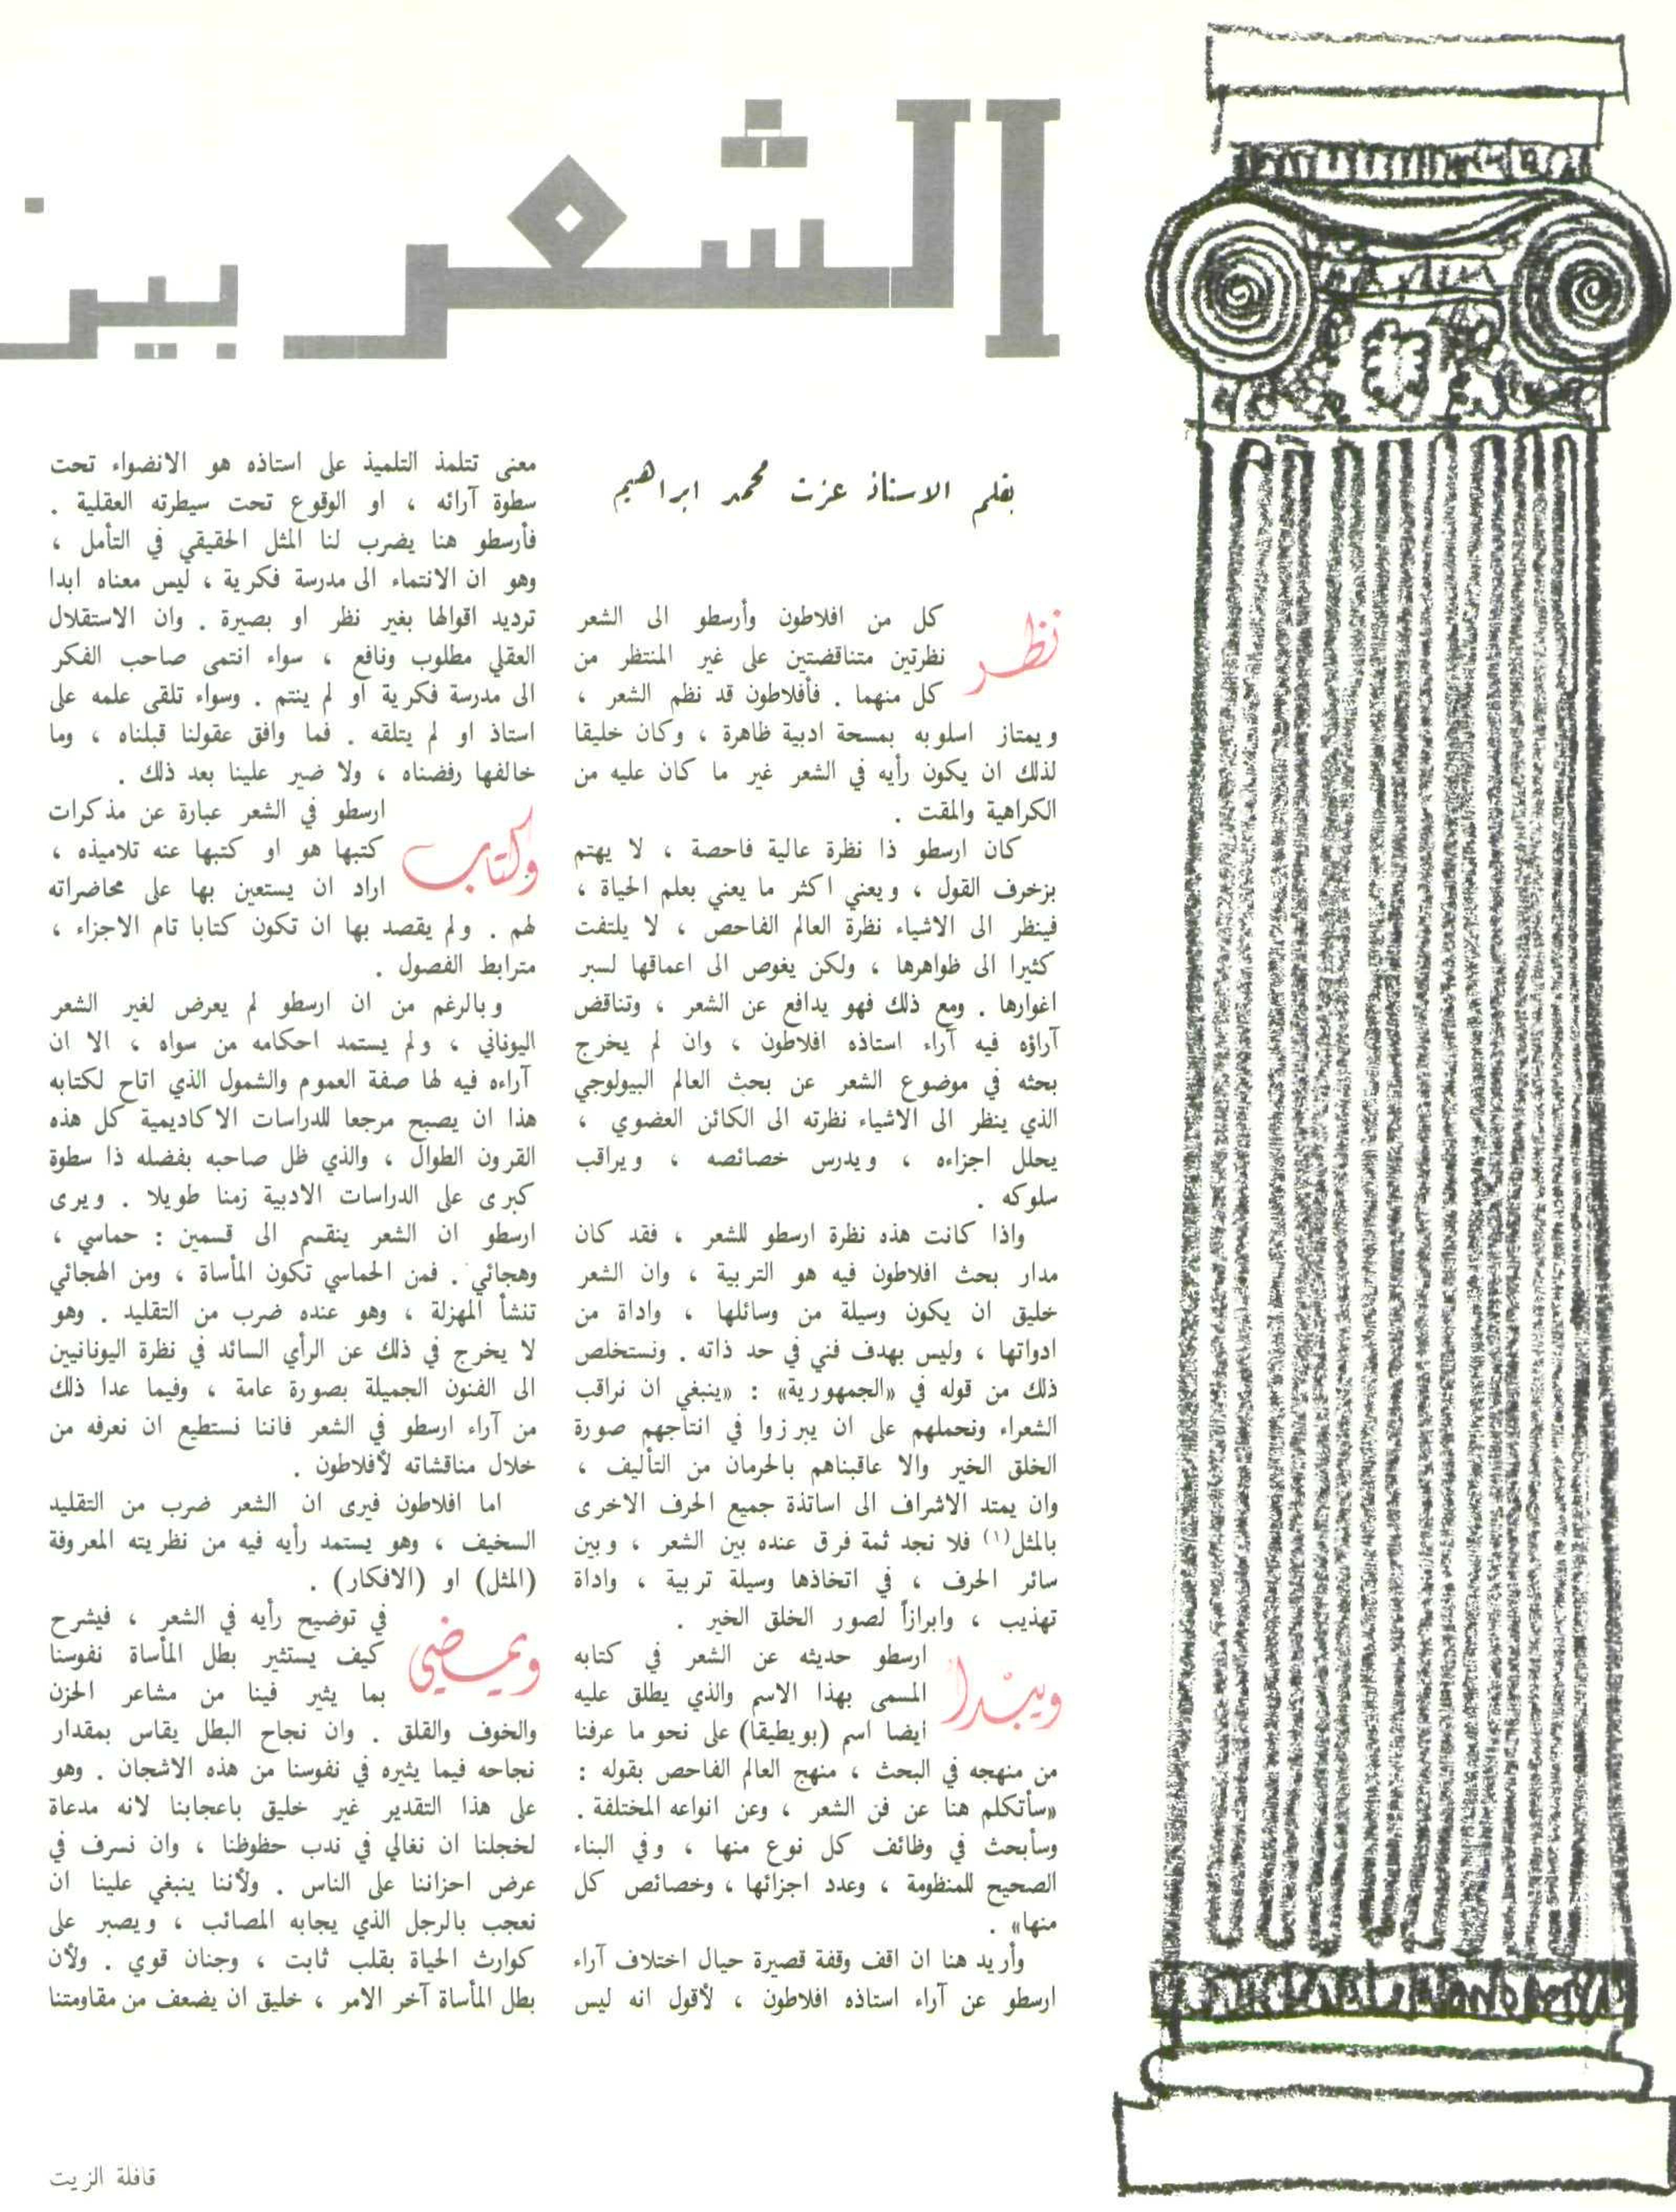 الشعر بين
بقلم الاستاذ عزت محمد ابراهيم
نظر كل من افلاطون وأرسطو الى الشعر
نظرتين متناقضتين على غير المنتظر من
كل منهما . فأفلاطون قد نظم الشعر ،
ويمتاز اسلوبه بمسحة ادبية ظاهرة ، وكان خليقا
لذلك ان يكون رأيه في الشعر غير ما كان عليه من
الكراهية والمقت .
كان ارسطو ذا نظرة عالية فاحصة ، لا يهتم
بزخرف القول ، ويعني اكثر ما يعني بعلم الحياة ،
فينظر الى الاشياء نظرة العالم الفاحص ، لا يلتفت
كثيرا الى ظواهرها ، ولكن يغوص الى اعماقها لسبر
اغوارها . ومع ذلك فهو يدافع عن الشعر ، وتناقض
آراؤه فيه آراء استاذه افلاطون ، وان لم يخرج
بحثه في موضوع الشعر عن بحث العالم البيولوجي
الذي ينظر الى الاشياء نظرته الى الكائن العضوي ،
يحلل اجزاءه ، ويدرس خصائصه ، ويراقب
سلوكه .
واذا كانت هذه نظرة ارسطو للشعر ، فقد كان
مدار بحث افلاطون فيه هو التربية ، وان الشعر
خليق ان يكون وسيلة من وسائلها ، واداة من
ادواتها ، وليس بهدف فني في حد ذاته . ونستخلص
ذلك من قوله في «الجمهورية» : «ينبغي ان نراقب
الشعراء ونحملهم على ان يبرزوا في انتاجهم صورة
الخلق الخير والا عاقبناهم بالحرمان من التأليف ،
وان يمتد الاشراف الى اساتذة جميع الحرف الاخرى
بالمثل(١) فلا نجد ثمة فرق عنده بين الشعر ، وبين
سائر الحرف ، في اتخاذها وسيلة تربية ، واداة
تهذيب ، وابرازاً لصور الخلق الخير .
ويبدأ ارسطو حديثه عن الشعر في كتابه
المسمى بهذا الاسم والذي يطلق عليه
ايضا اسم (بويطيقا) على نحو ما عرفنا
من منهجه في البحث ، منهج العالم الفاحص بقوله :
«سأتكلم هنا عن فن الشعر ، وعن انواعه المختلفة .
وسأبحث في وظائف كل نوع منها ، وفي البناء
الصحيح للمنظومة ، وعدد اجزائها ، وخصائص كل
منها» .
وأريد هنا ان اقف وقفة قصيرة حيال اختلاف آراء
ارسطو عن آراء استاذه افلاطون ، لأقول انه ليس
معنى تتلمذ التلميذ على استاذه هو الانضواء تحت
سطوة آرائه ، او الوقوع تحت سيطرته العقلية .
فأرسطو هنا يضرب لنا المثل الحقيقي في التأمل ،
وهو ان الانتماء الى مدرسة فكرية ، ليس معناه ابدا
ترديد اقوالها بغير نظر او بصيرة . وان الاستقلال
العقلي مطلوب ونافع ، سواء انتمى صاحب الفكر
الى مدرسة فكرية او لم ينتم . وسواء تلقى علمه على
استاذ او لم يتلقه . فما وافق عقولنا قبلناه ، وما
خالفها رفضناه ، ولا ضير علينا بعد ذلك .
وكتاب ارسطو في الشعر عبارة عن مذكرات
كتبها هو او كتبها عنه تلاميذه ،
اراد ان يستعين بها على محاضراته
لهم . ولم يقصد بها ان تكون كتابا تام الاجزاء ،
مترابط الفصول .
وبالرغم من ان ارسطو لم يعرض لغير الشعر
اليوناني ، ولم يستمد احكامه من سواه ، الا ان
آراءه فيه لها صفة العموم والشمول الذي اتاح لكتابه
هذا ان يصبح مرجعا للدراسات الاكاديمية كل هذه
القرون الطوال ، والذي ظل صاحبه بفضله ذا سطوة
كبرى على الدراسات الادبية زمنا طويلا . ويرى
ارسطو ان الشعر ينقسم الى قسمين : حماسي ،
وهجائي . فمن الحماسي تكون المأساة ، ومن الهجائي
تنشأ المهزلة ، وهو عنده ضرب من التقليد . وهو
لا يخرج في ذلك عن الرأي السائد في نظرة اليونانيين
الى الفنون الجميلة بصورة عامة ، وفيما عدا ذلك
من آراء ارسطو في الشعر فاننا نستطيع ان نعرفه من
خلال مناقشاته لأفلاطون .
اما افلاطون فيرى ان الشعر ضرب من التقليد
السخيف ، وهو يستمد رأيه فيه من نظريته المعروفة
(المثل) او (الافكار) .
ويمضي في توضيح رأيه في الشعر ، فيشرح
كيف يستثير بطل المأساة نفوسنا
بما يثير فينا من مشاعر الحزن
والخوف والقلق . وان نجاح البطل يقاس بمقدار
نجاحه فيما يثيره في نفوسنا من هذه الاشجان . وهو
على هذا التقدير غير خليق باعجابنا لانه مدعاة
لخجلنا ان نغالي في ندب حظوظنا ، وان نسرف في
عرض احزاننا على الناس . ولأننا ينبغي علينا ان
نعجب بالرجل الذي يجابه المصائب ، ويصبر على
كوارث الحياة بقلب ثابت ، وجنان قوي . ولأن
بطل المأساة آخر الامر ، خليق ان يضعف من مقاومتنا
قافلة الزيت